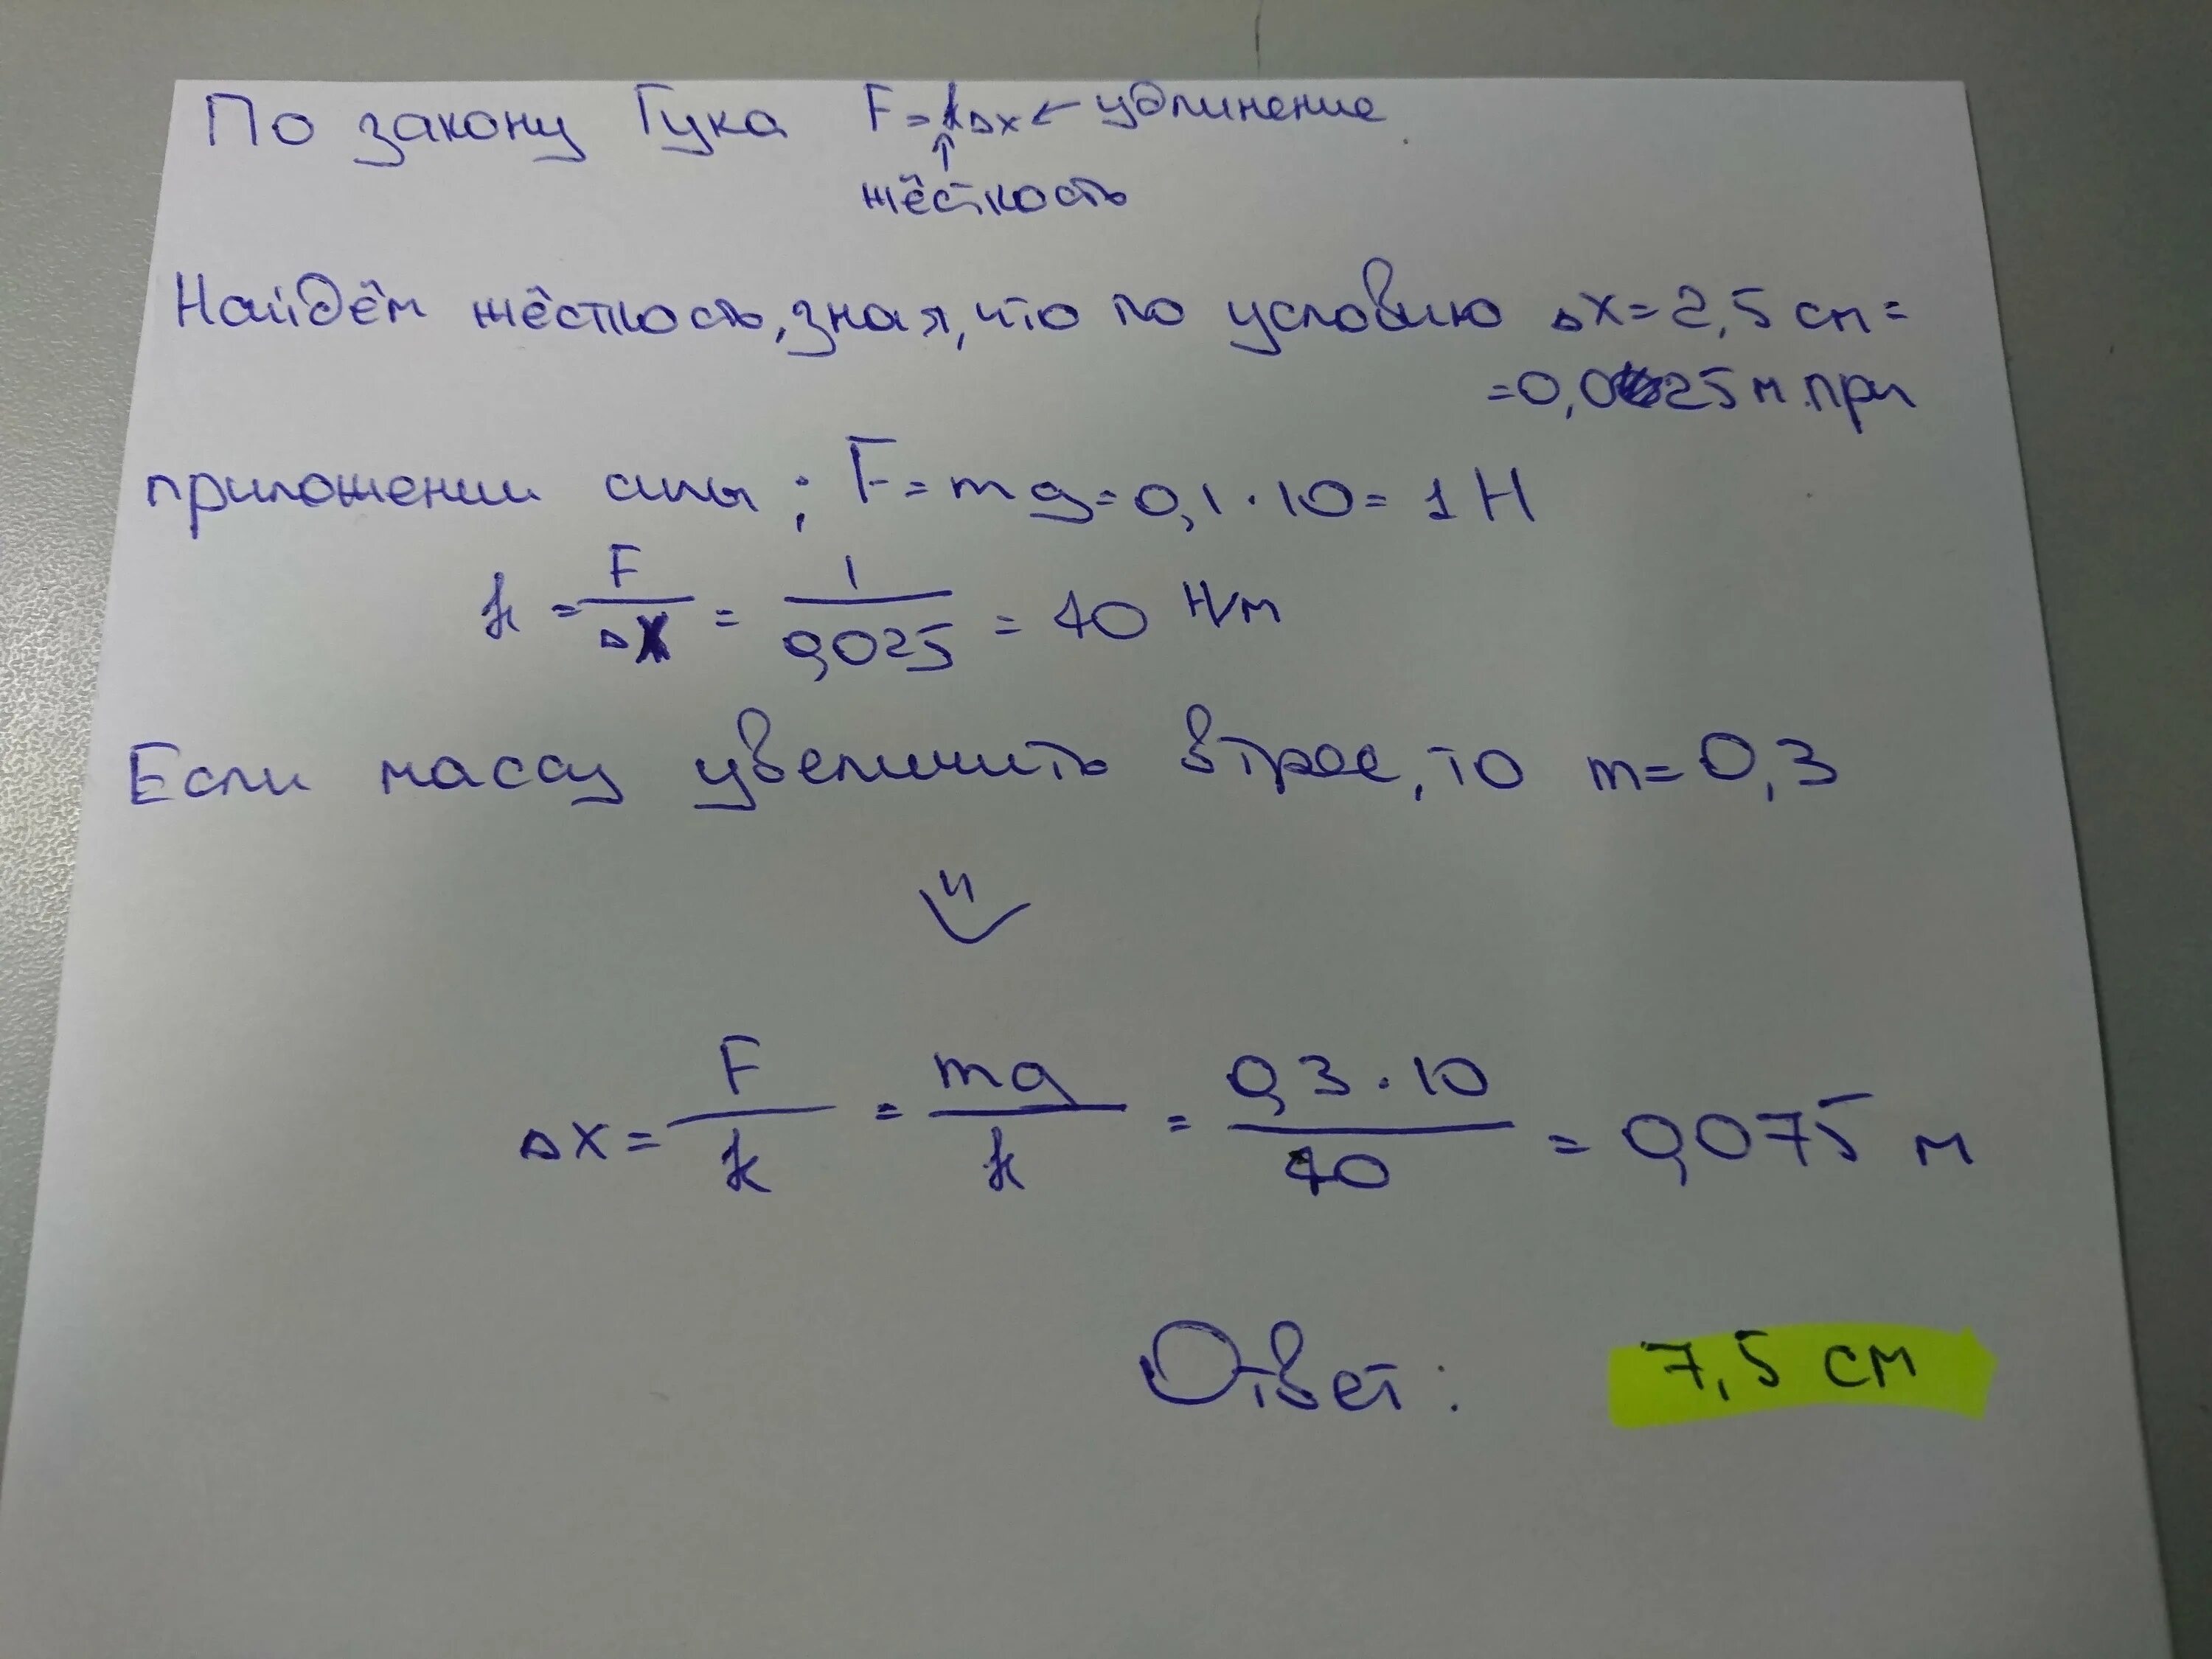 По закону Гука F = kΔx ← удлинение
↑
жёсткость
Найдём жёсткость, зная, что по условию Δx = 2,5 см =
= 0,025 м при
приложении силы : F = mg = 0,1 · 10 = 1 Н
k = F/Δx = 1/0,025 = 40 Н/м
Если массу увеличить втрое, то m = 0,3
⇓
Δx = F/k = mg/k = 0,3 · 10/40 = 0,075 м
Ответ: 7,5 см